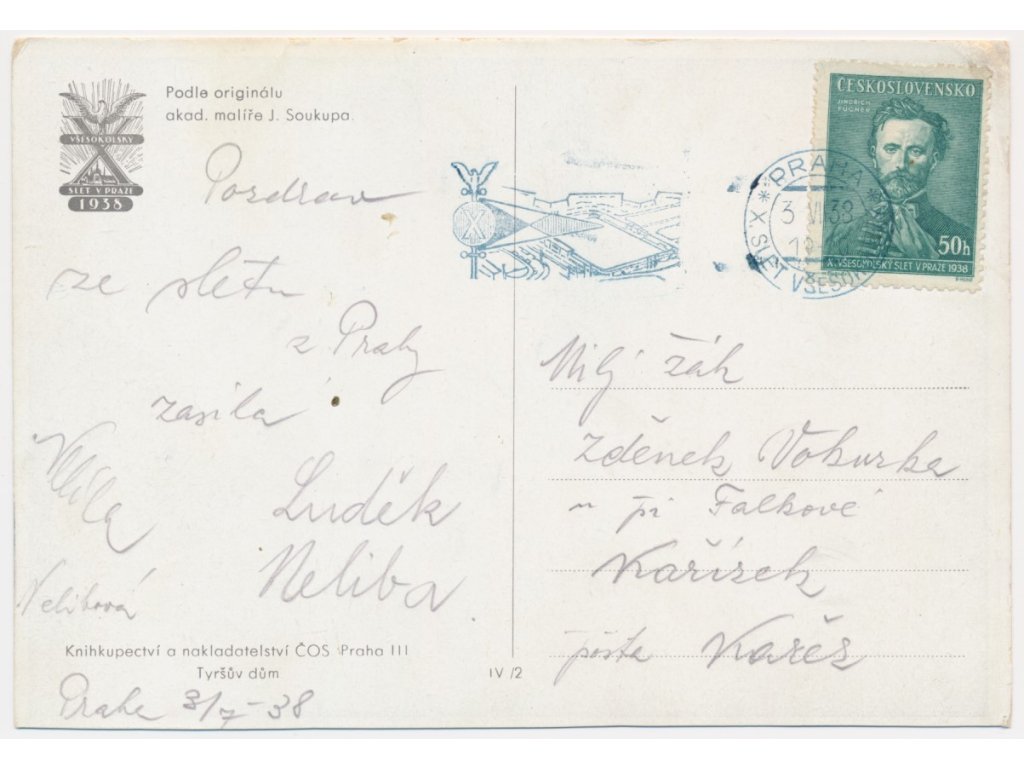 Podle originálu
akad. malíře J. Soukupa.
VŠESOKOLSKÝ
X
SLET V PRAZE
1938
Pozdrav
ze sletu
z Prahy
zasílá
Luděk
Neliba
Míla
Nelibová
Knihkupectví a nakladatelství ČOS Praha III
Tyršův dům
IV/2
Praha 3/7-38
X
PRAHA
3 VII 38
X. SLET VŠESOK
ČESKOSLOVENSKO
JINDŘICH
FÜGNER
50h
X. VŠESOKOLSKÝ SLET V PRAZE 1938
Milý žák
Zděnek Vokurka
u pí Falkové
Kařízek
pošta Kařez